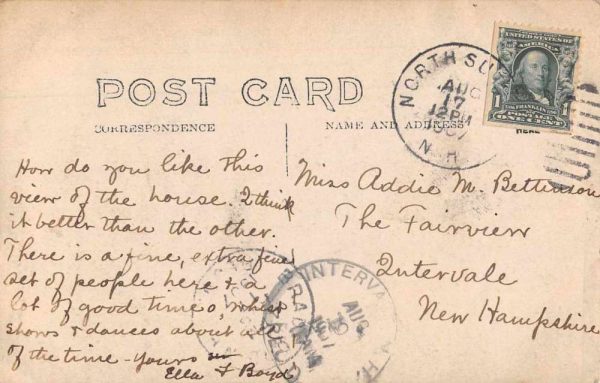 POST CARD
CORRESPONDENCE
NAME AND ADDRESS
HERE
How do you like this
view of the house. I think
it better than the other.
There is a fine, extra fine
set of people here & a
lot of good times, whist
shows & dances about all
of the time - yours
Ella F Boyd
NORTH SU
AUG
17
12 PM
1907
N.H.
UNITED STATES OF
AMERICA
1
FRANKLIN
ONE CENT
Miss Addie M. Bettinson
The Fairview
Intervale
New Hampshire
INTERVA
AUG
N.H.
REC'D